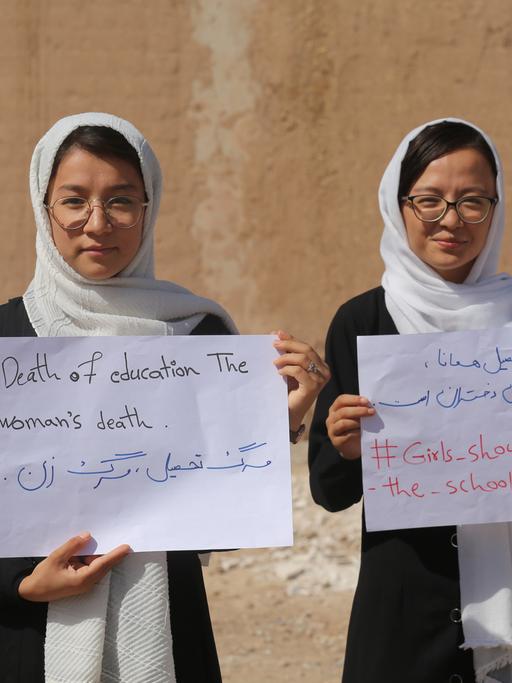 Death of education The
woman's death .
مرگ تحصیل ، مرگ زن .
دختران است .
#Girls_shou
-the_school